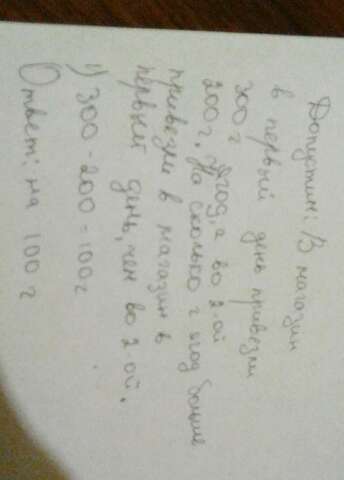 Допустим: В магазин
в первый день привезли
300 г ягод, а во 2-ой
200 г. На сколько г ягод больше
привезли в магазин в
первый день, чем во 2-ой.
1) 300 - 200 = 100 г
Ответ: на 100 г